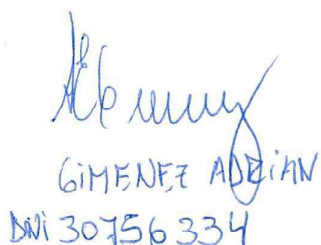 GiMENEZ ADRiAN
DNi 30756334